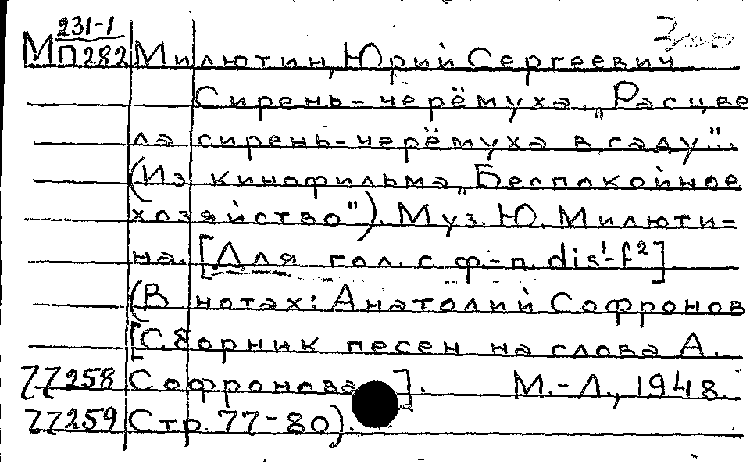 231-1
М П282 Милютин, Юрий Сергеевич
Сирень-черёмуха. „Расцве
ла сирень-черёмуха в саду".
(Из кинофильма „Беспокойное
хозяйство"). Муз. Ю. Милюти-
на. [Для гол. с ф-п. dis¹-f²]
(В нотах: Анатолий Софронов
[Сборник песен на слова А.
77258 Софронова]. М.-Л., 1948.
77259 Стр. 77-80).